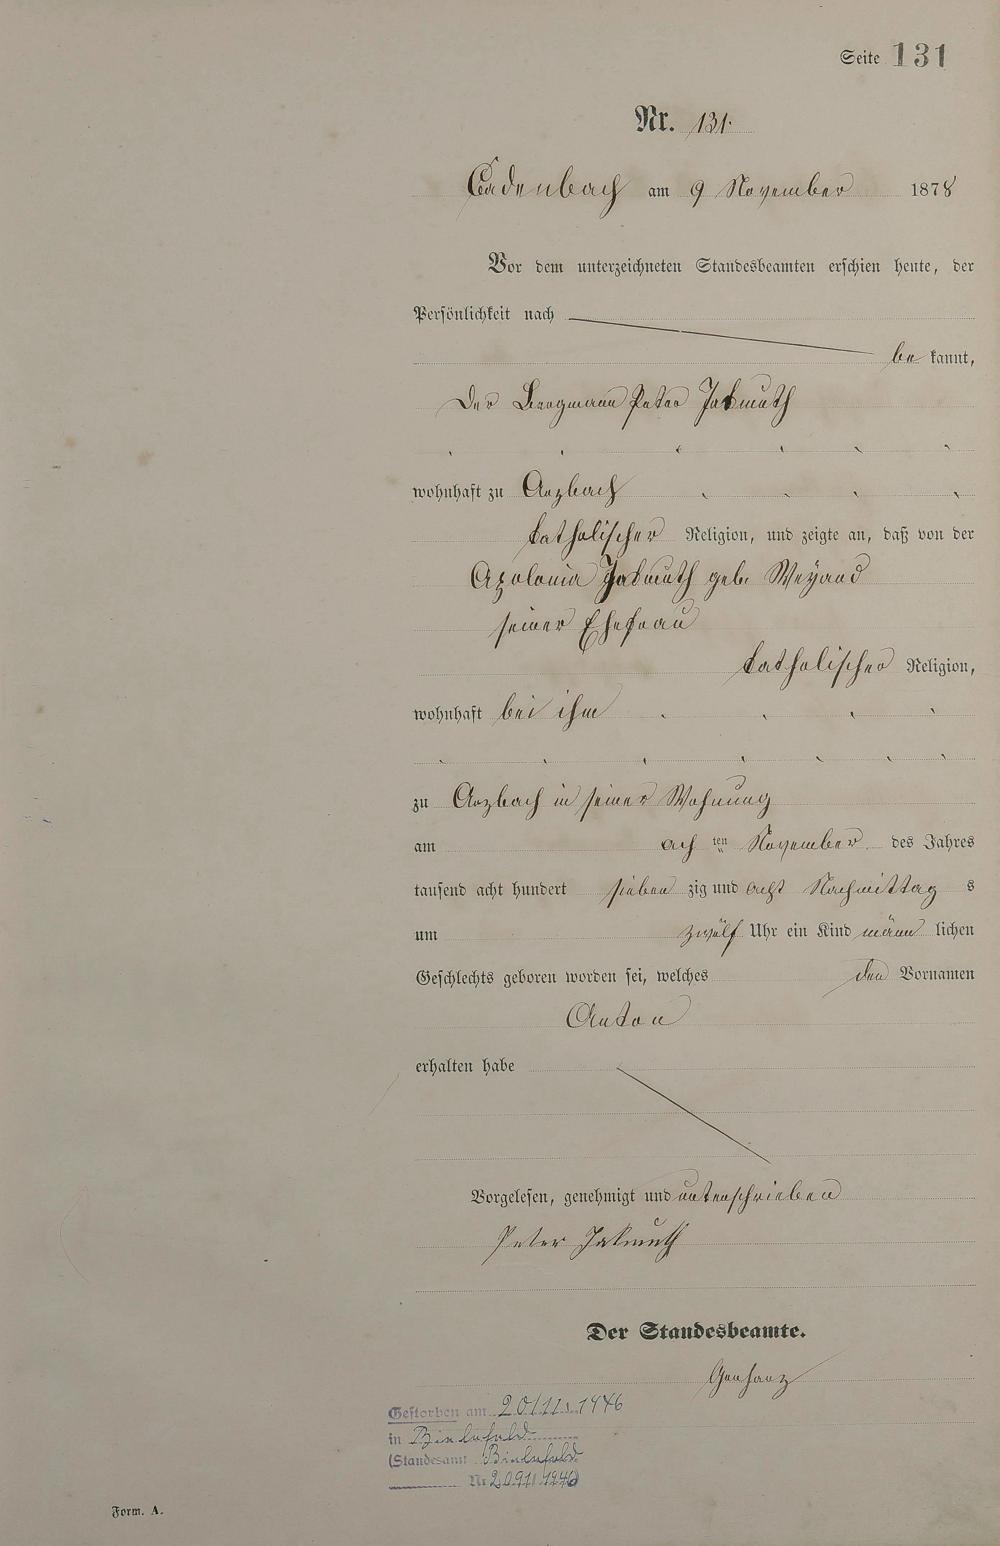 Seite 131
Nr. 131.
Cadenbach am 9 November 1878
Vor dem unterzeichneten Standesbeamten erschien heute, der
Persönlichkeit nach
be kannt,
der Bergmann Peter Jakmuth
wohnhaft zu Arzbach
katholischer Religion, und zeigte an, daß von der
Apolonia Jakmuth geb. Weyand
seiner Ehefrau
katholischer Religion,
wohnhaft bei ihm
zu Arzbach in seiner Wohnung
am ach ten November des Jahres
tausend acht hundert sieben zig und acht Nachmittag s
um zwölf Uhr ein Kind männ lichen
Geschlechts geboren worden sei, welches den Vornamen
Anton
erhalten habe
Vorgelesen, genehmigt und unterschrieben
Peter Jakmuth
Der Standesbeamte.
Gestorben am 20/11. 1946
in Bielefeld
(Standesamt Bielefeld
Nr 2091/1946)
Form. A.